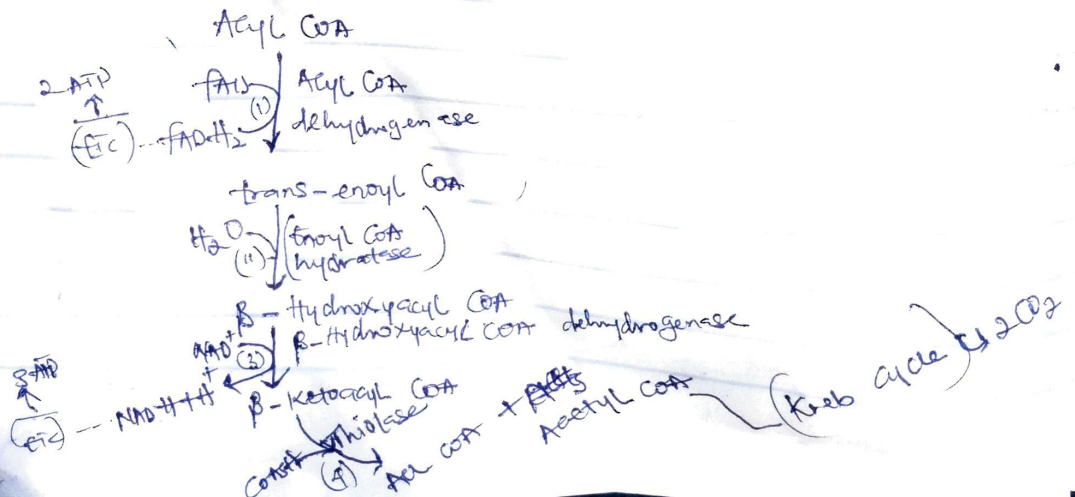 Acyl CoA
2 ATP
FAD
(1)
Acyl CoA
dehydrogenase
(ETC) ... FADH2
trans-enoyl CoA
H2O
(11)
(Enoyl CoA
hydratase)
β-Hydroxyacyl CoA
β-Hydroxyacyl CoA dehydrogenase
NAD+
(3)
3 ATP
(ETC) ... NADH+H+
β-Ketoacyl CoA
Thiolase
CoASH
(4)
CoA +
Acetyl CoA
(Kreb cycle)
2 CO2